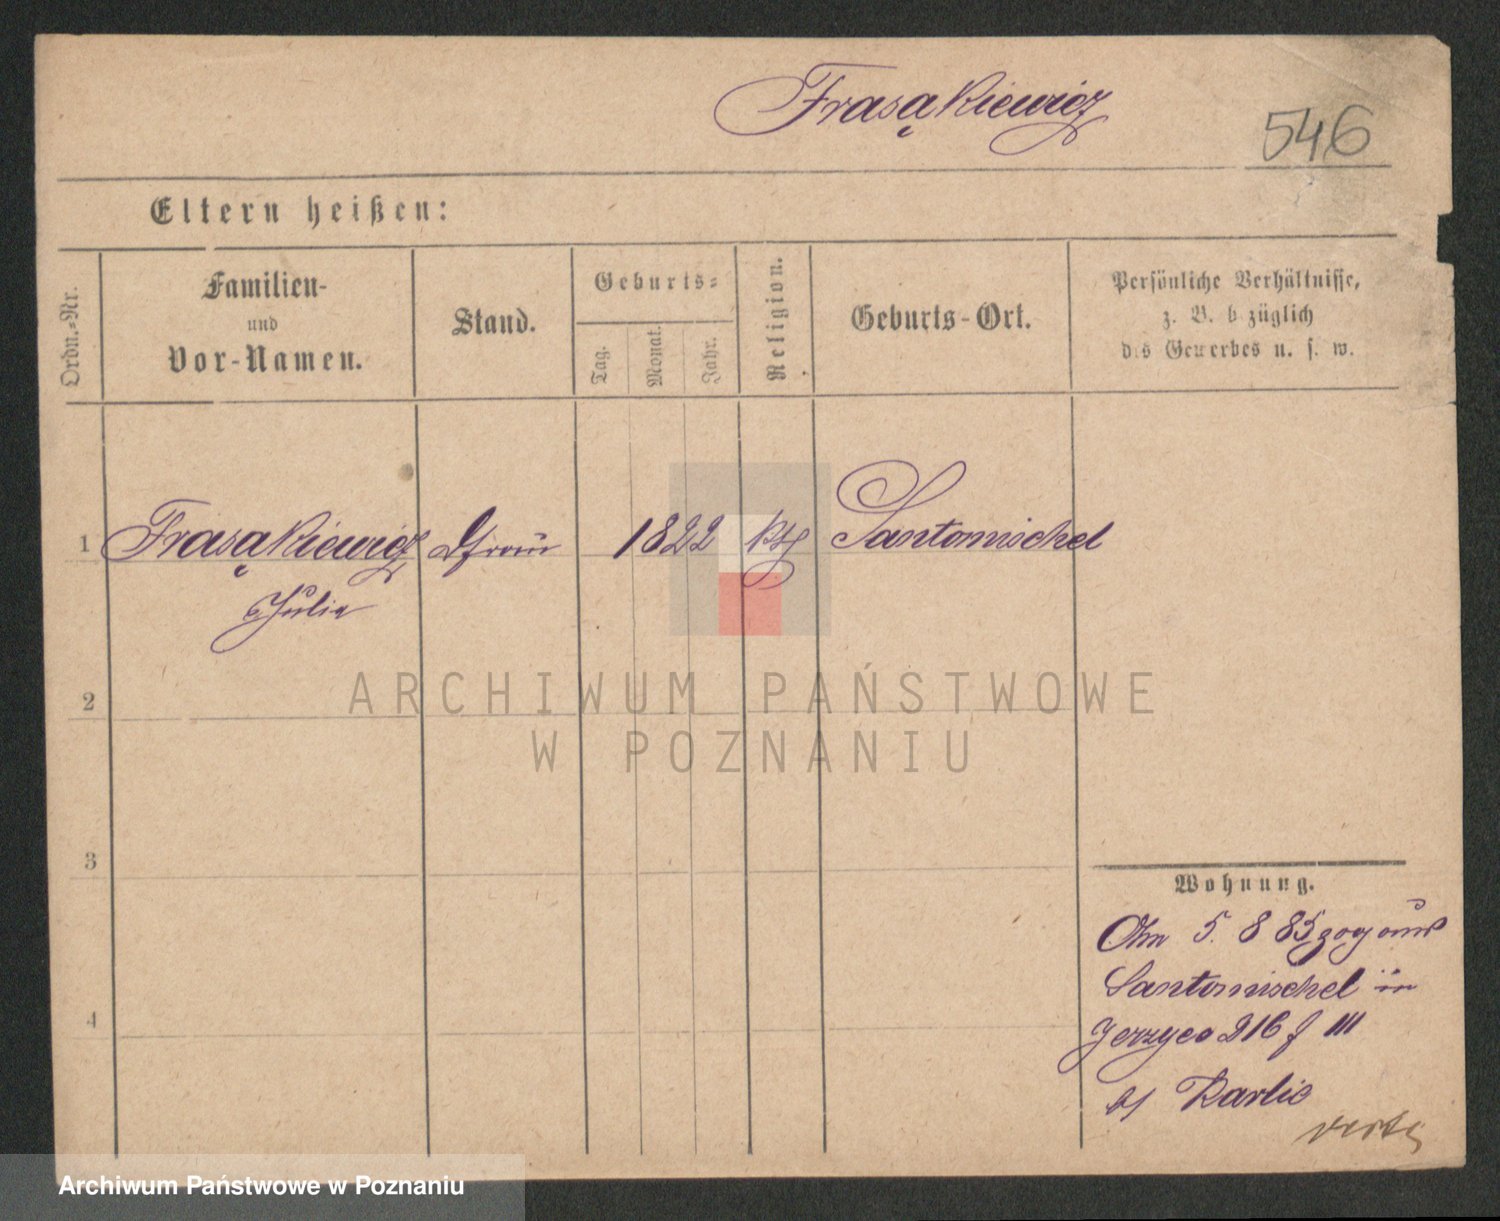 Frasąkiewicz
546
Eltern heißen:
Ordn.-Nr.
Familien-
und
Vor-Namen.
Stand.
Geburts-
Tag.
Monat.
Jahr.
Religion.
Geburts-Ort.
Persönliche Verhältnisse,
z. B. bezüglich
des Gewerbes u. s. w.
1 Frasąkiewicz 1822 kth Santomischel
Julia
ARCHIWUM PAŃSTWOWE
W POZNANIU
2
3
4
Wohnung.
Am 5. 8 85 zog aus
Santomischel in
Jerzyce 216 f III
b/ Karlic
Archiwum Państwowe w Poznaniu